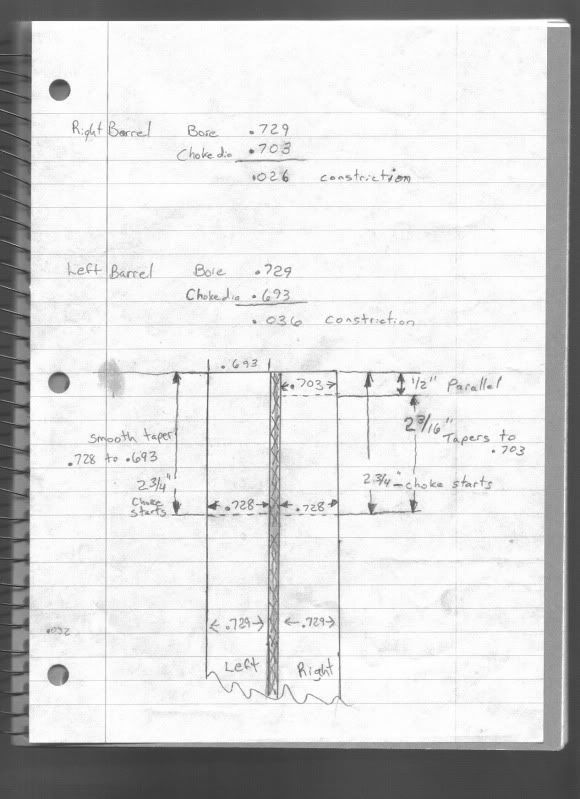 Right Barrel Bore .729
Choke dia .703
.026 constriction
Left Barrel Bore .729
Choke dia .693
.036 constriction
.693
.703
1/2" Parallel
2 3/16"
Tapers to
.703
smooth taper
.728 to .693
2 3/4"
Choke
starts
2 3/4" - choke starts
.728 .728
.729 .729
.032
Left Right